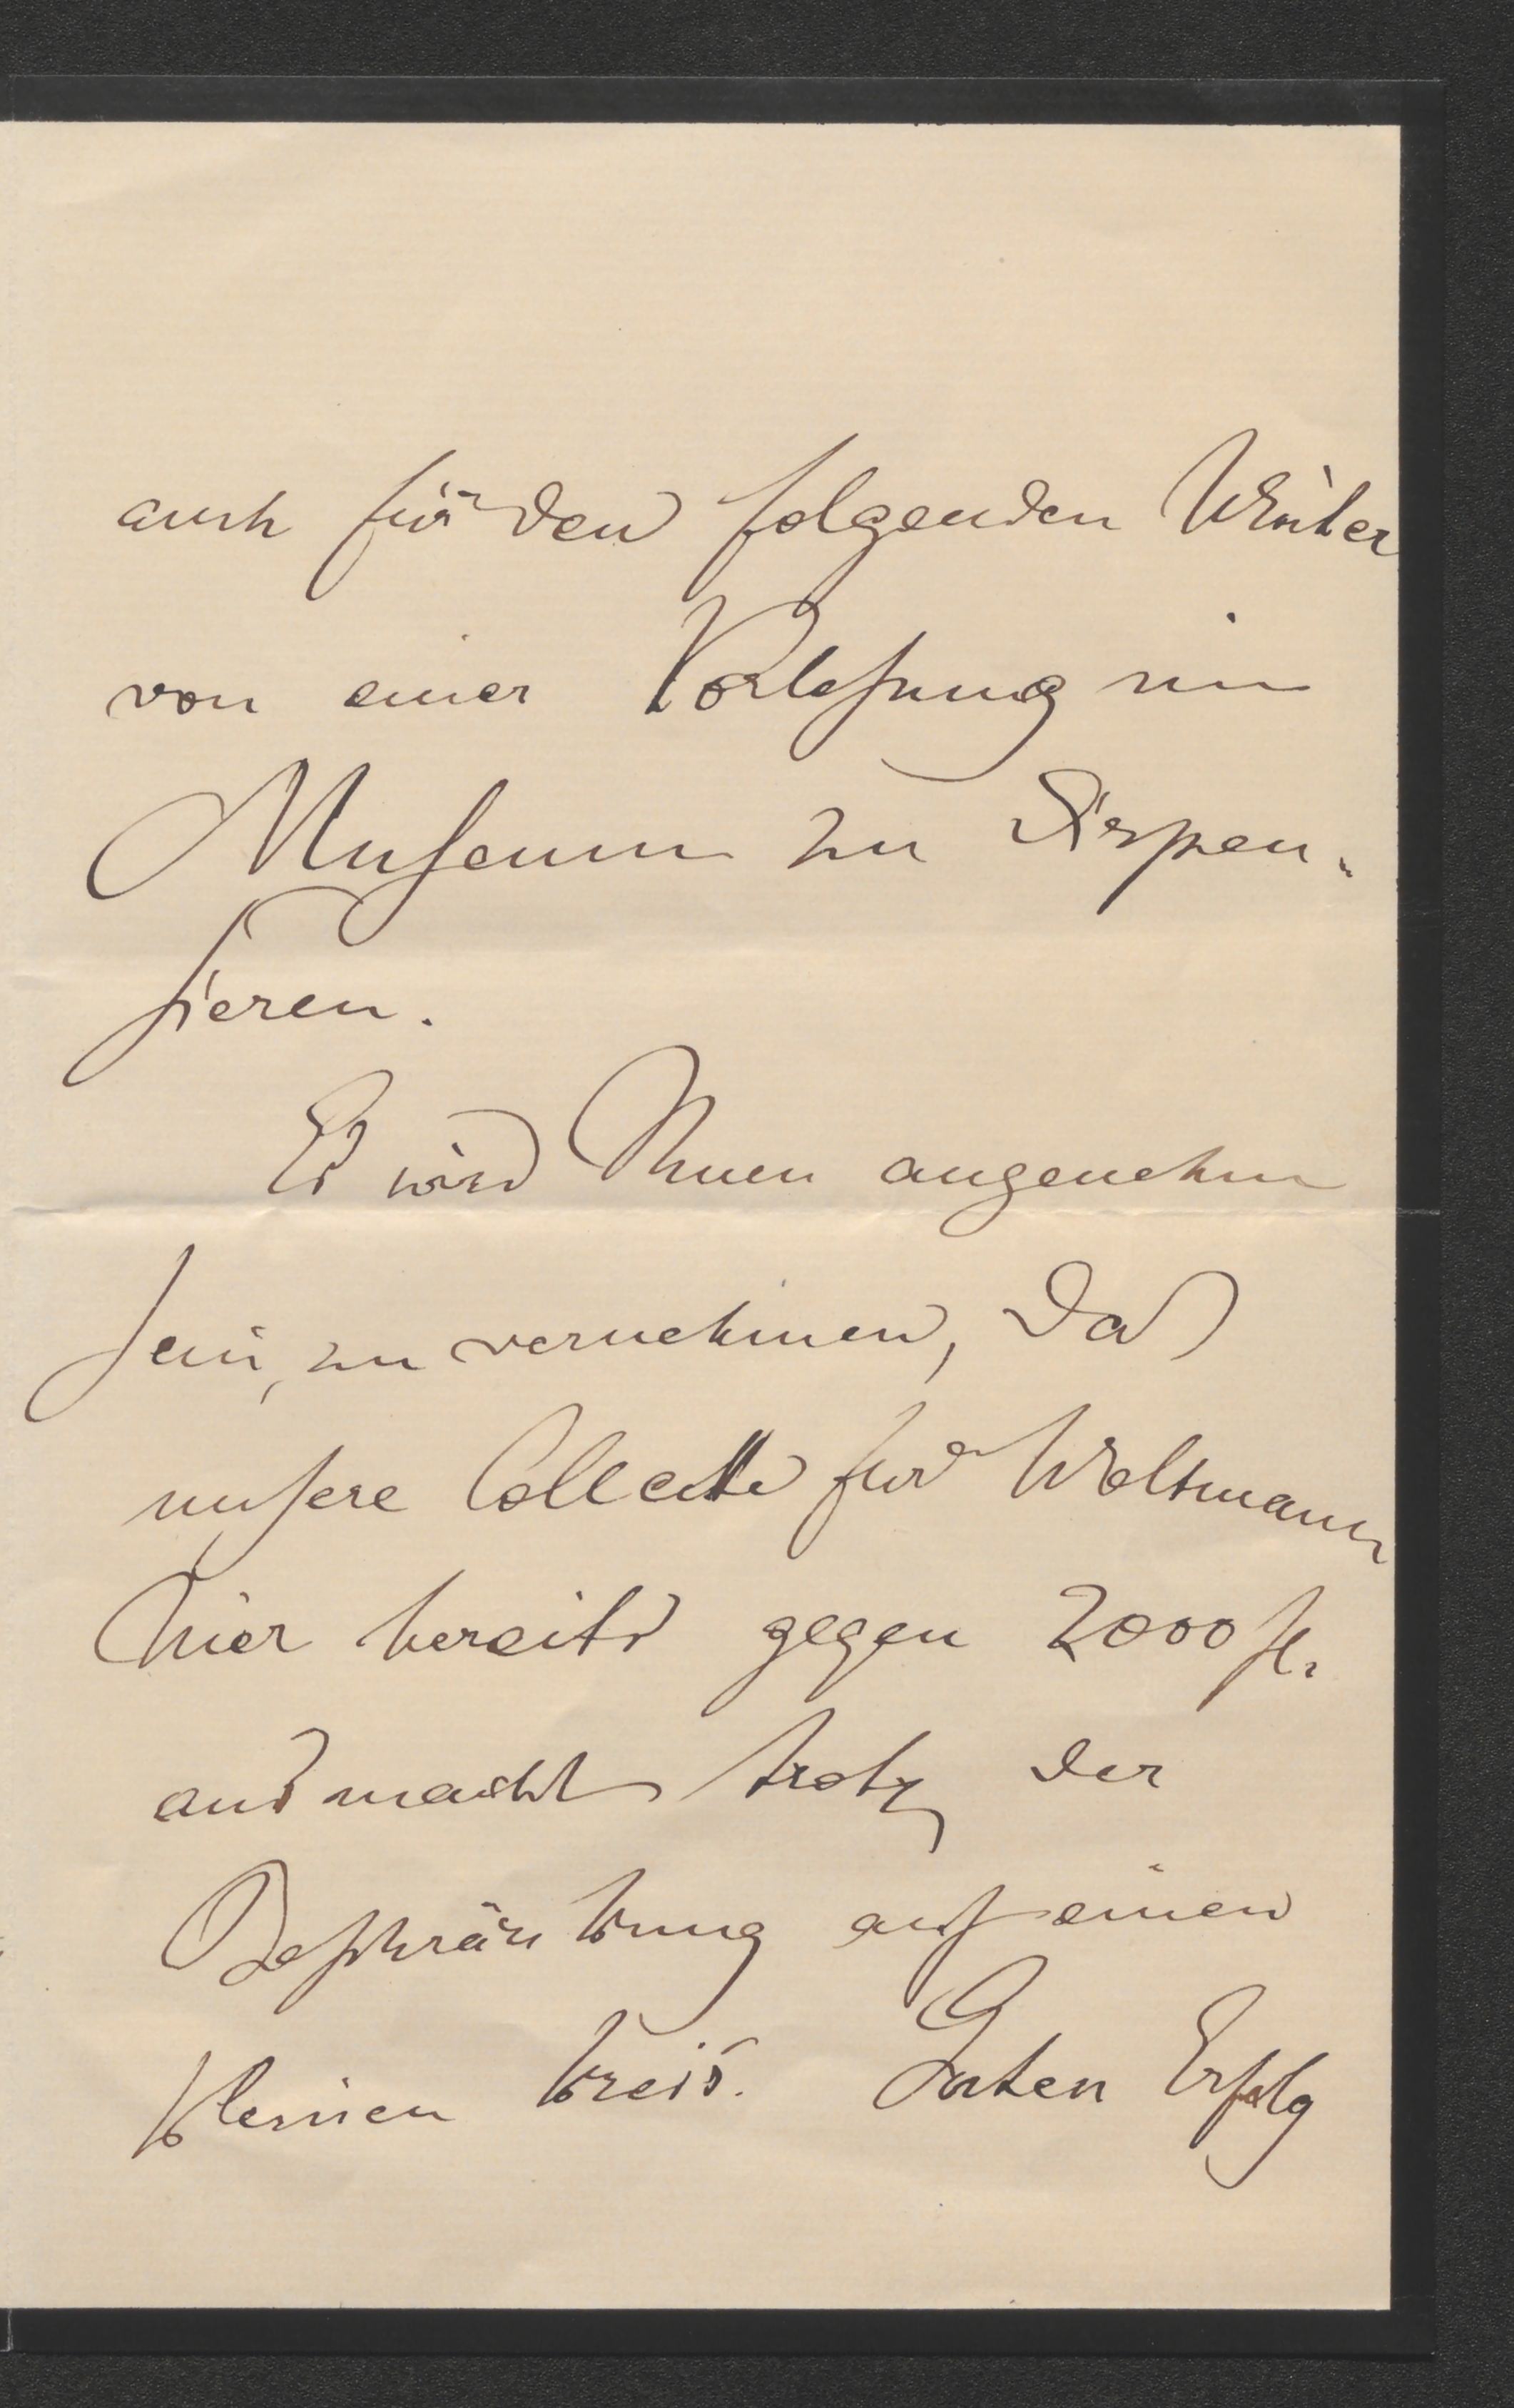 auch für den folgenden Winter
von einer Vorlesung im
Museum zu dispen-
sieren.
Es wird Ihnen angenehm
sein, zu vernehmen, daß
unsere Collecte für Woltmann
hier bereits gegen 2000 fl.
ausmacht trotz der
Beschränkung auf einen
kleinen Kreis. Guten Erfolg